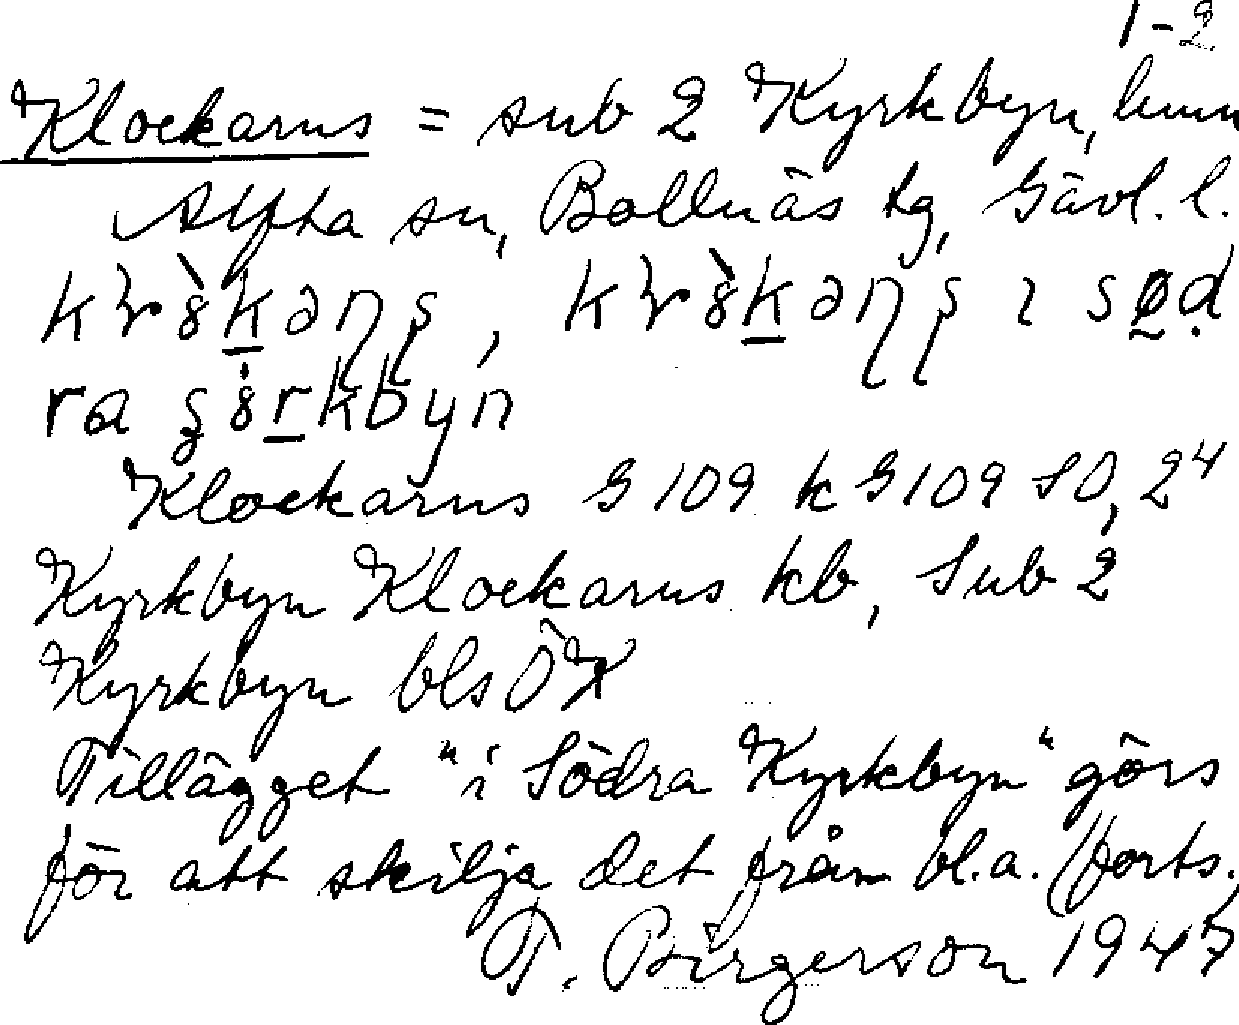 1-2
Klockarns = sub 2 Kyrkbyn, hmn
Alfta sn, Bollnäs tg, Gävl. l.
ra
Klockarns G 109 k G 109 SO, 2⁴
Kyrkbyn Klockarns kb, Sub 2
Kyrkbyn bls ÖK
Tillägget "i Södra Kyrkbyn" görs
för att skilja det från bl.a. (forts.)
T. Birgerson 1947